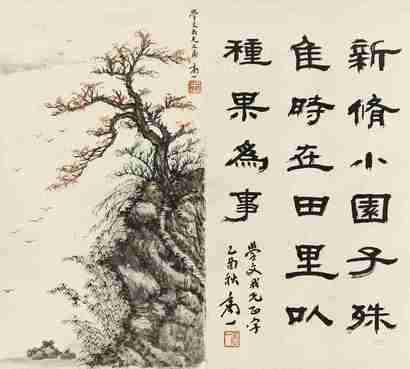 新脩小園子殊
隹時在田里以
種果為事
學文我兄正字
乙酉秋
學文我兄正